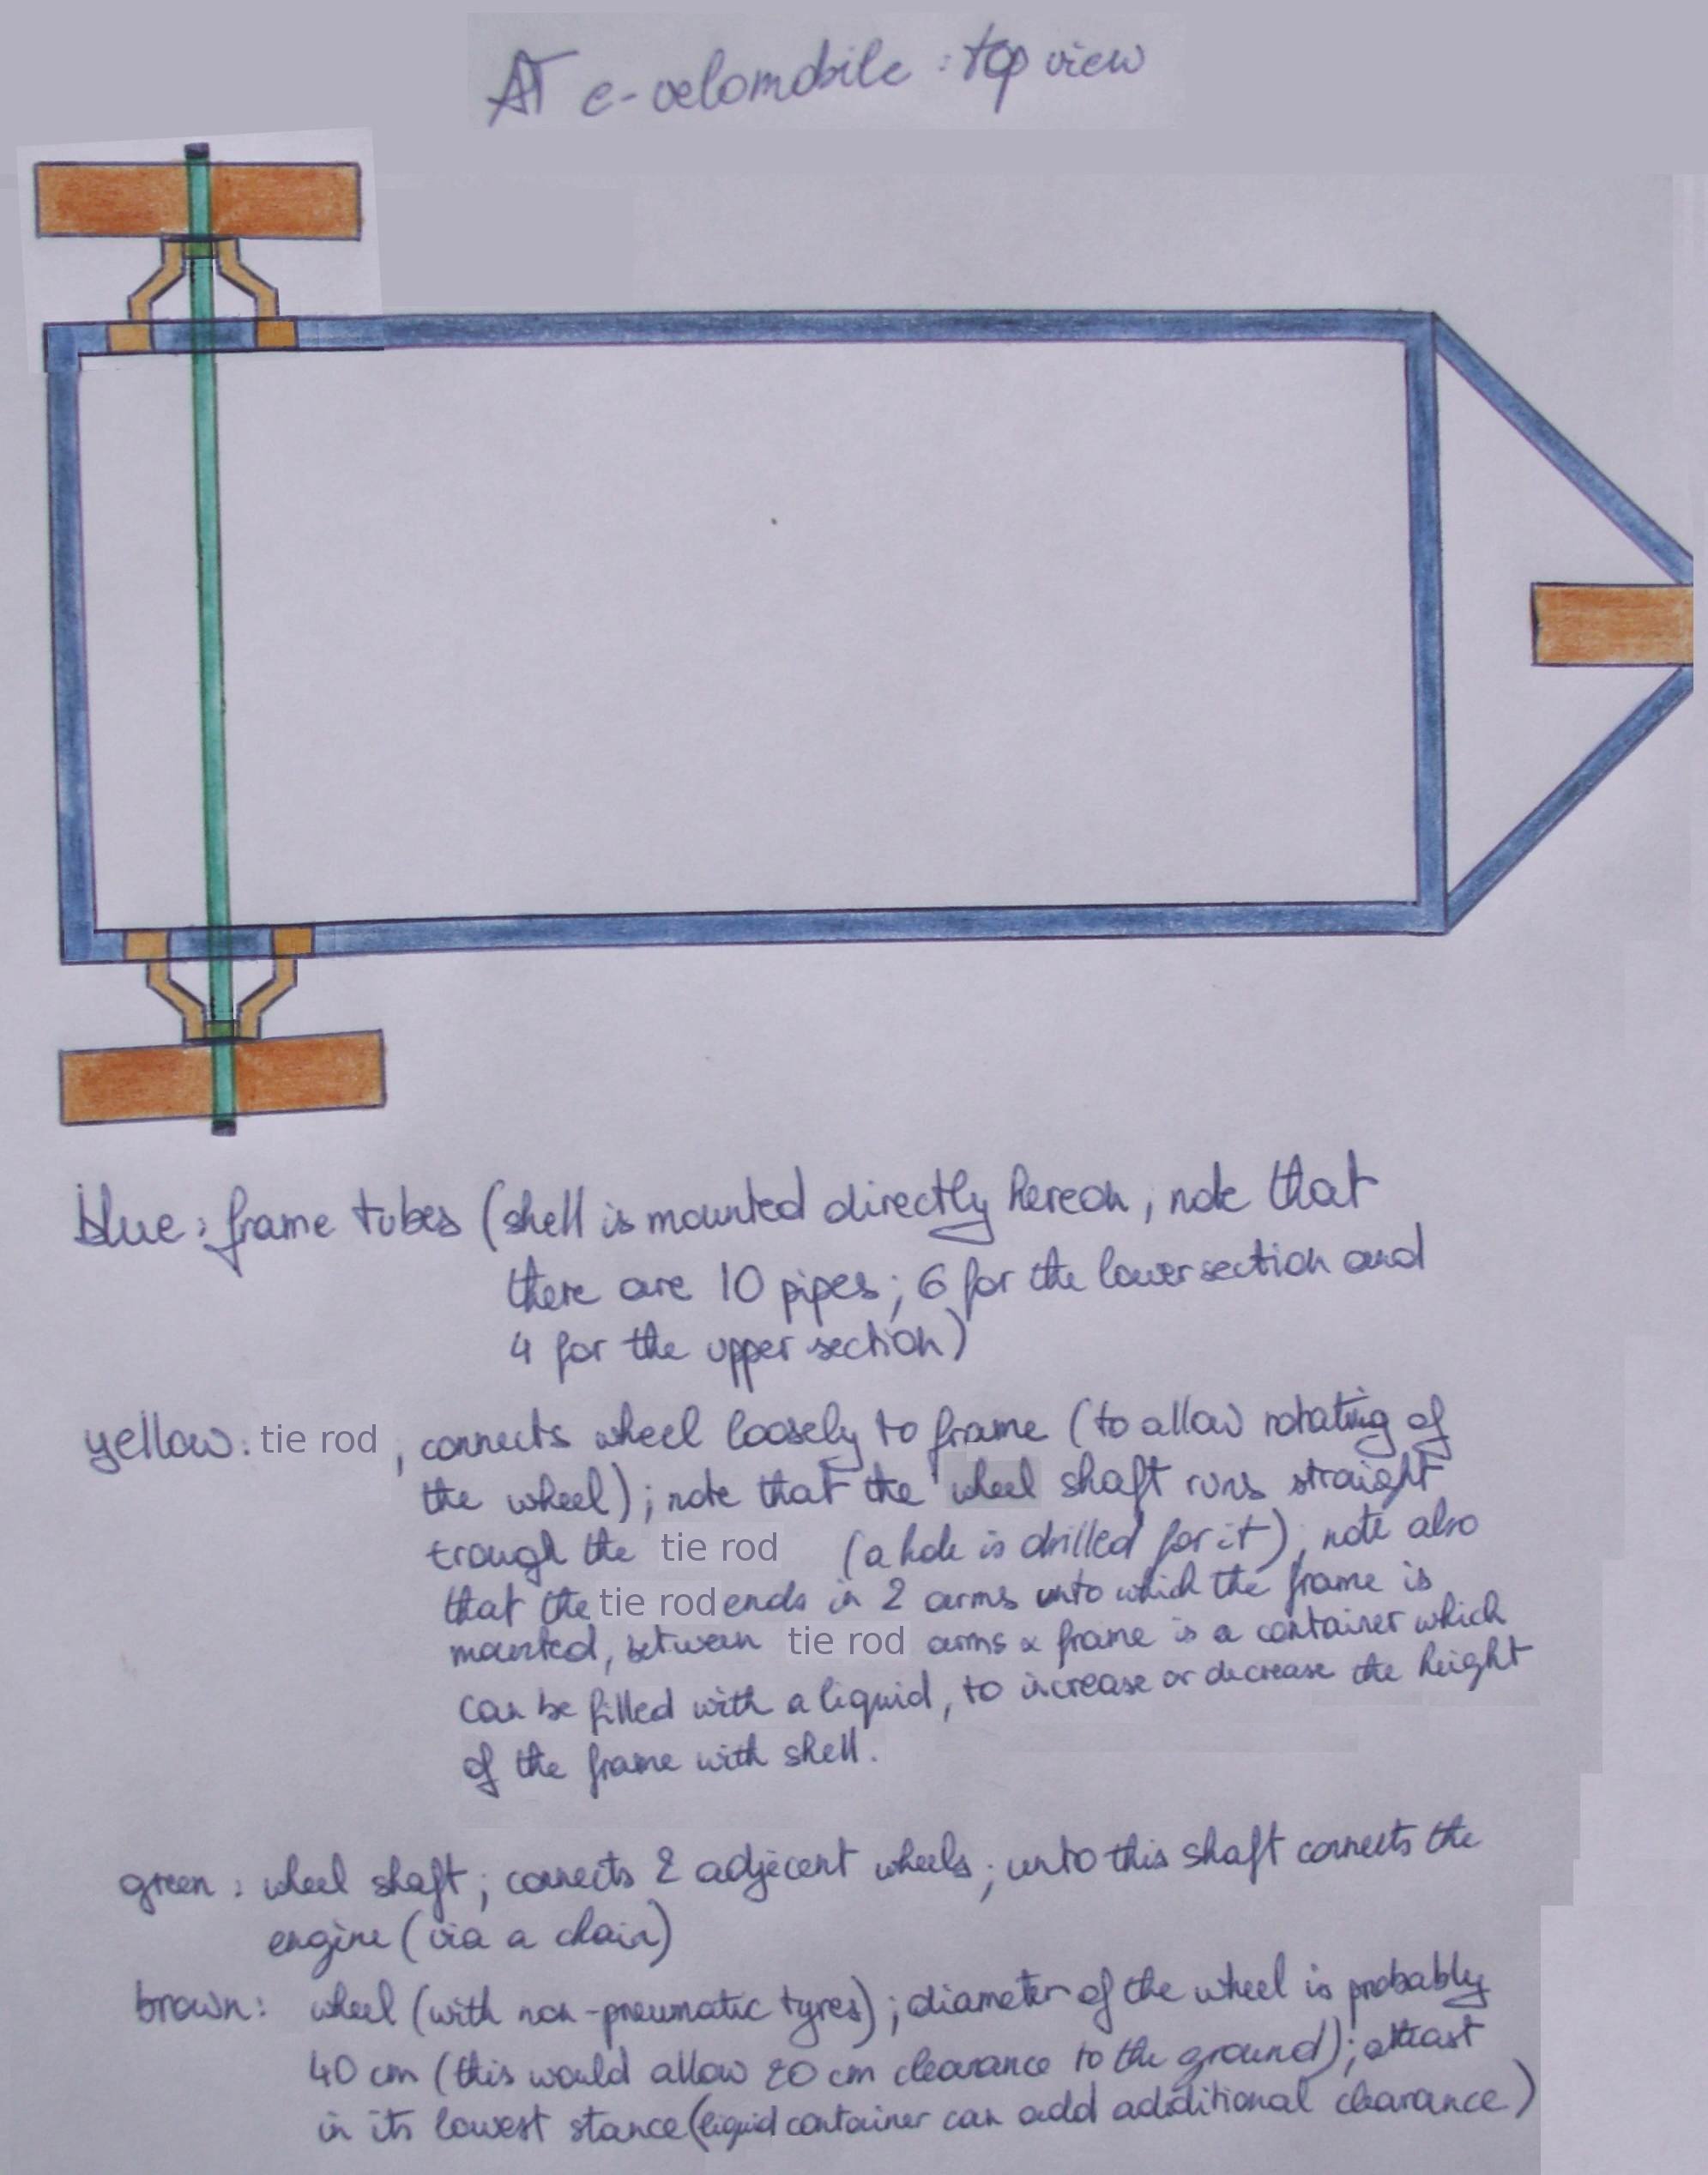 AT e-velomobile : top view
blue : frame tubes (shell is mounted directly hereon, note that
there are 10 pipes; 6 for the lower section and
4 for the upper section)
yellow : tie rod, connects wheel loosely to frame (to allow rotating of
the wheel); note that the wheel shaft runs straight
trough the tie rod (a hole is drilled for it), note also
that the tie rod ends in 2 arms unto which the frame is
mounted, between tie rod arms & frame is a container which
can be filled with a liquid, to increase or decrease the height
of the frame with shell.
green : wheel shaft; connects 2 adjecent wheels; unto this shaft connects the
engine (via a chain)
brown : wheel (with non-pneumatic tyres); diameter of the wheel is probably
40 cm (this would allow 20 cm clearance to the ground); atleast
in its lowest stance (liquid container can add additional clearance)